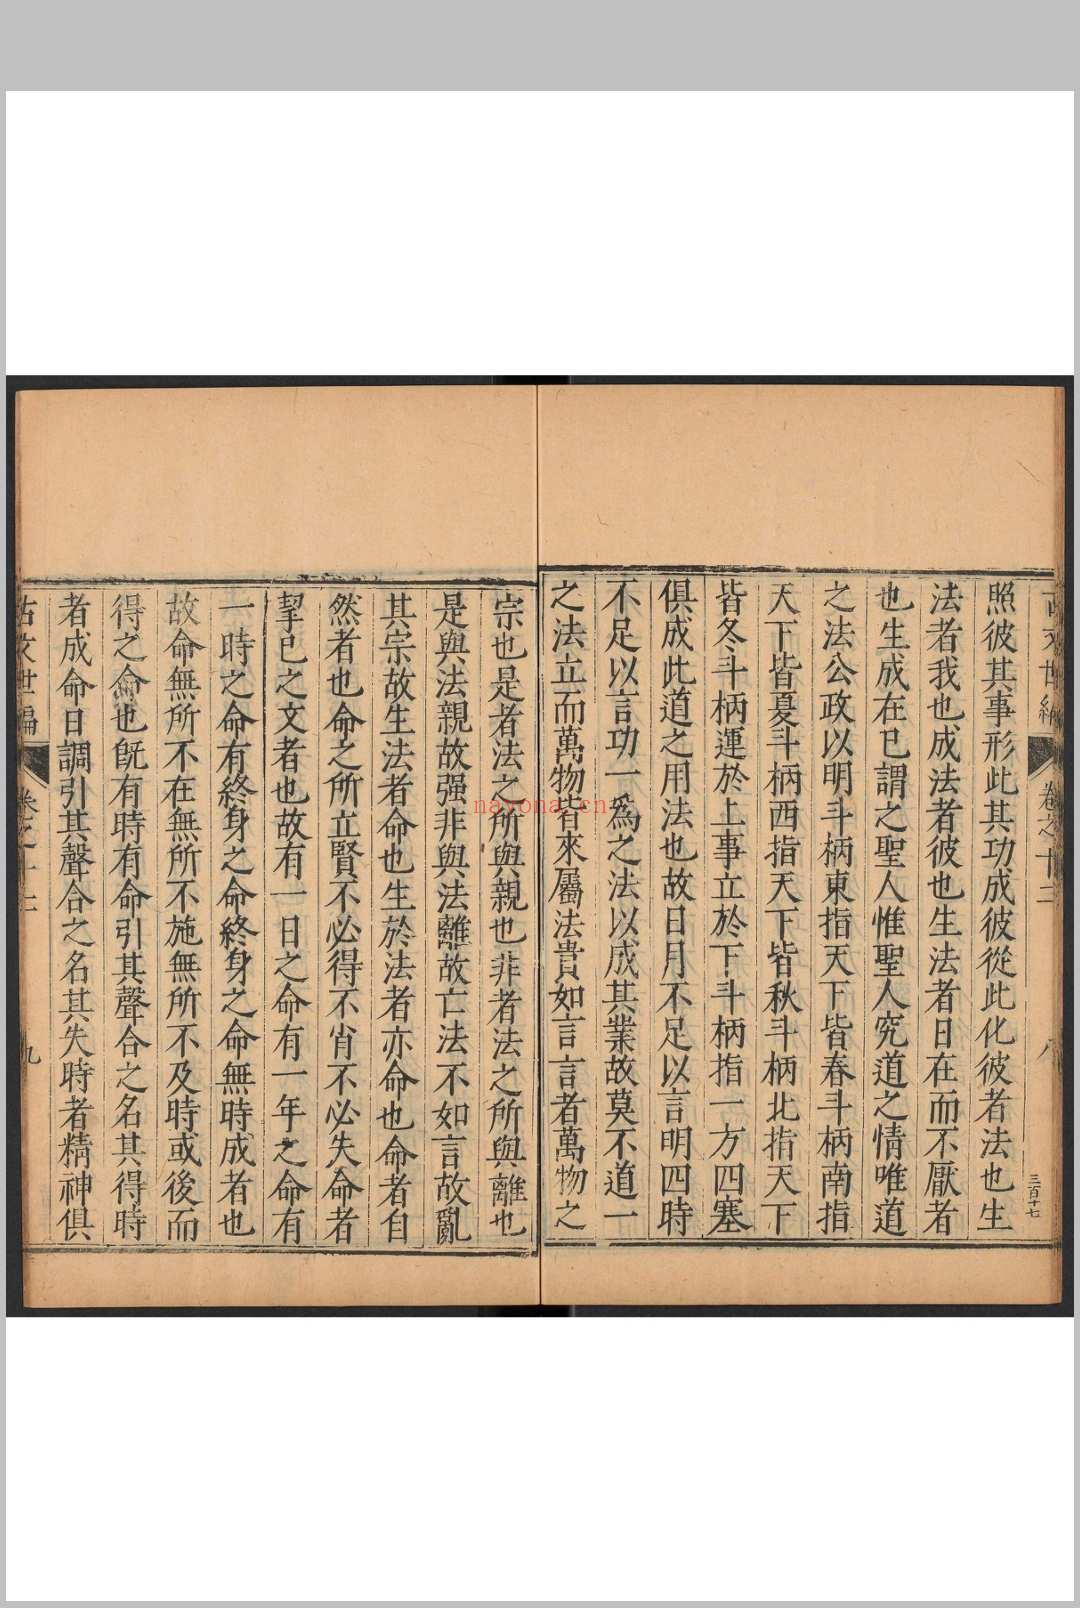 古文世編 卷之十二 八 三百十七
照彼其事形此其功成彼從此化彼者法也生
法者我也成法者彼也生法者日在而不厭者
也生成在已謂之聖人惟聖人究道之情唯道
之法公政以明斗柄東指天下皆春斗柄南指
天下皆夏斗柄西指天下皆秋斗柄北指天下
皆冬斗柄運於上事立於下斗柄指一方四塞
俱成此道之用法也故日月不足以言明四時
不足以言功一爲之法以成其業故莫不道一
之法立而萬物皆來屬法貴如言言者萬物之
宗也是者法之所與親也非者法之所與離也
是與法親故强非與法離故亡法不如言故亂
其宗故生法者命也生於法者亦命也命者自
然者也命之所立賢不必得不肖不必失命者
挈已之文者也故有一日之命有一年之命有
一時之命有終身之命終身之命無時成者也
故命無所不在無所不施無所不及時或後而
得之命也旣有時有命引其聲合之名其得時
者成命日調引其聲合之名其失時者精神俱
古文世編 卷之十二 九
nayona.cn